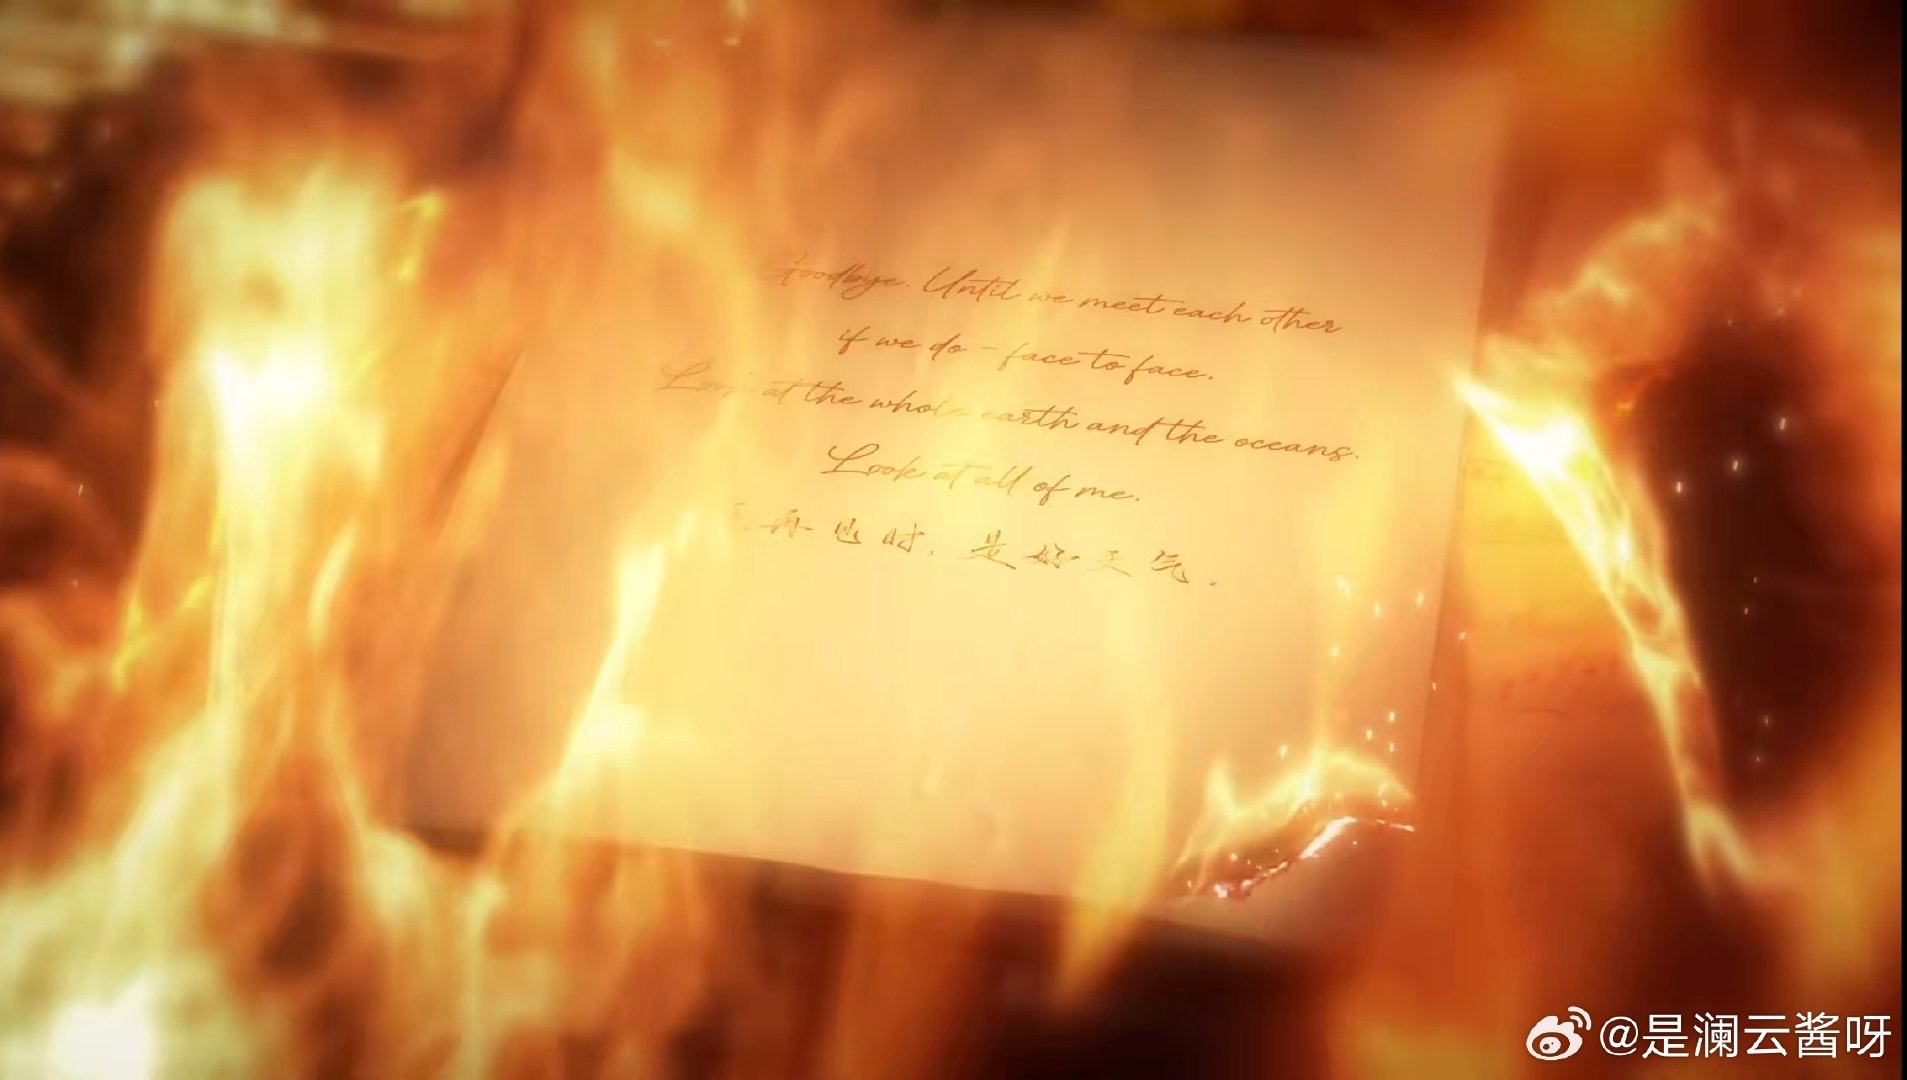 Goodbye. Until we meet each other
if we do - face to face.
Look at the whole earth and the oceans.
Look at all of me.
再 时, 是好天气.
@是澜云酱呀